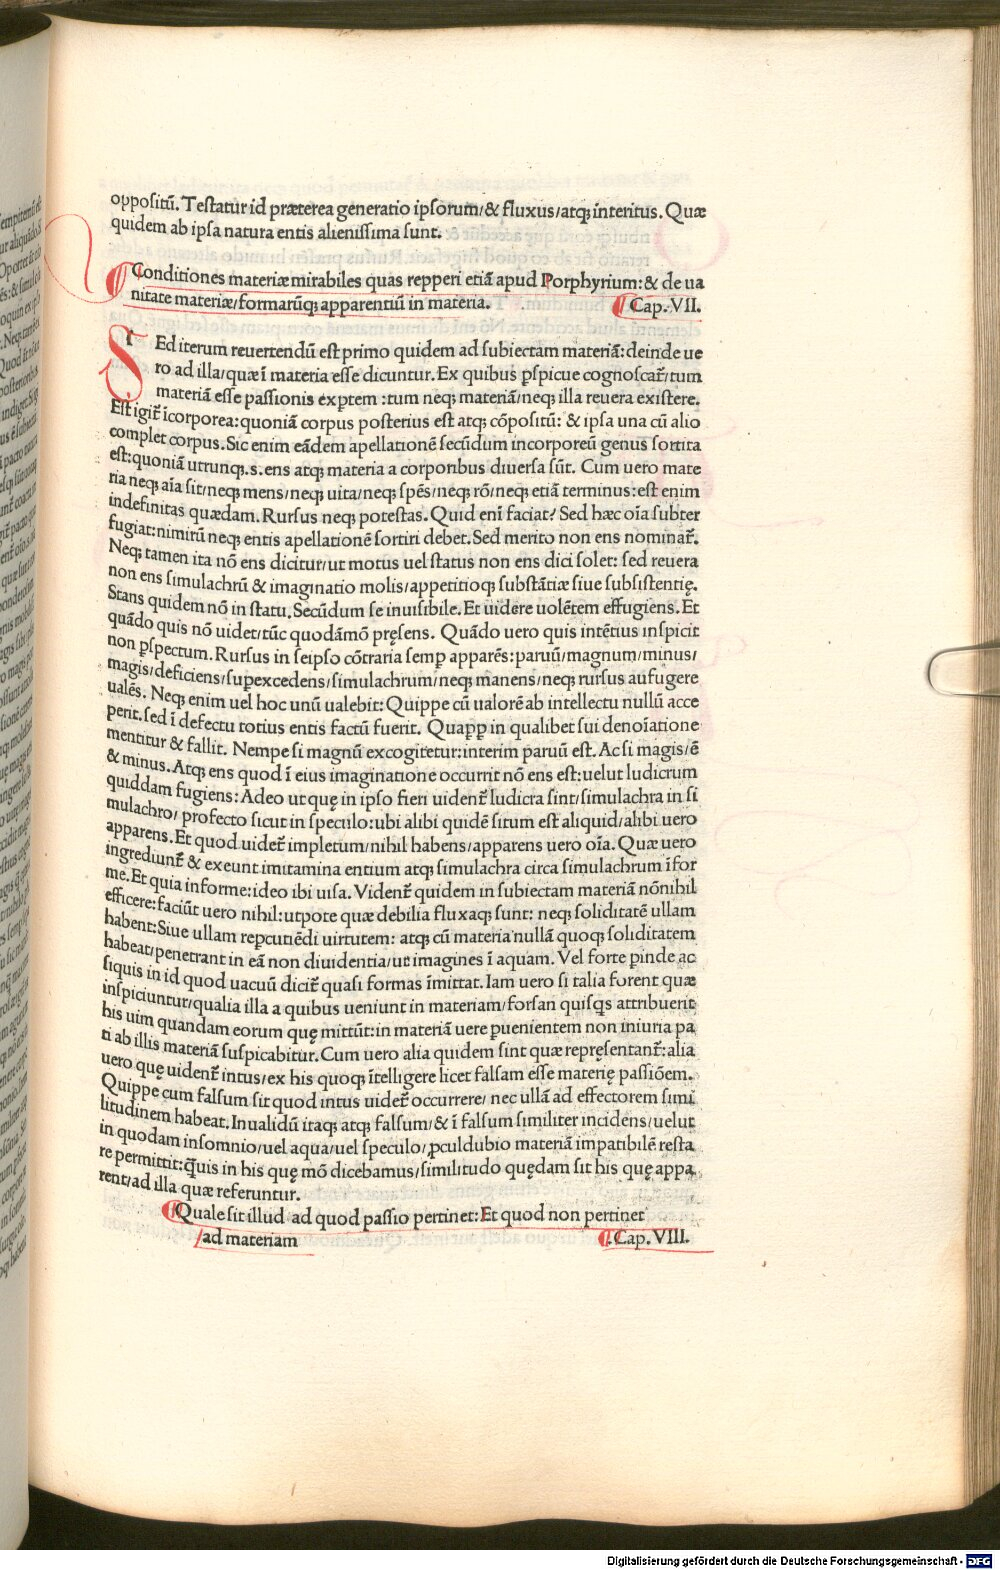 oppositū. Testatur id præterea generatio ipsorum/& fluxus/atq; interitus. Quæ
quidem ab ipsa natura entis alienissima sunt.
Conditiones materiæ mirabiles quas repperi etiā apud Porphyrium: & de ua
nitate materiæ/formarūq; apparentiū in materia. Cap. VII.
SEd iterum reuertendū est primo quidem ad subiectam materiā: deinde ue
ro ad illa/quæ ī materia esse dicuntur. Ex quibus ꝑspicue cognoscat᷑/tum
materiā esse passionis exꝑtem: tum neq; materiā/neq; illa reuera existere.
Est igit᷑ īcorporea: quoniā corpus posterius est atq; cōpositū: & ipsa una cū alio
complet corpus. Sic enim eādem apellationē secūdum incorporeū genus sortita
est: quoniā utrunq; .s. ens atq; materia a corporibus diuersa sūt. Cum uero mate
ria neq; aīa sit/neq; mens/neq; uita/neq; spēs/neq; rō/neq; etiā terminus: est enim
indefinitas quædam. Rursus neq; potestas. Quid enī faciat? Sed hæc oīa subter
fugiat: nimirū neq; entis apellationē sortiri debet. Sed merito non ens nominat᷑.
Neq; tamen ita nō ens dicitur/ut motus uel status non ens dici solet: sed reuera
non ens simulachrū & imaginatio molis/appetitioq; substātiæ siue subsistentię.
Stans quidem nō in statu. Secūdum se inuisibile. Et uidere uolētem effugiens. Et
quādo quis nō uidet/tūc quodāmō pręsens. Quādo uero quis intētius inspicit
non ꝑspectum. Rursus in seipso cōtraria semꝑ apparēs: paruū/magnum/minus/
magis/deficiens/suꝑexcedens/simulachrum/neq; manens/neq; rursus aufugere
ualēs. Neq; enim uel hoc unū ualebit: Quippe cū ualorē ab intellectu nullū acce
perit. sed ī defectu totius entis factū fuerit. Quaꝓꝑ in qualibet sui denoīatione
mentitur & fallit. Nempe si magnū excogitetur: interim paruū est. Ac si magis/ē
& minus. Atq; ens quod ī eius imaginatione occurrit nō ens est: uelut ludicrum
quiddam fugiens: Adeo ut quę in ipso fieri uident᷑ ludicra sint/simulachra in si
mulachro/ profecto sicut in speculo: ubi alibi quidē situm est aliquid/alibi uero
apparens. Et quod uidet᷑ impletum/nihil habens/apparens uero oīa. Quæ uero
ingrediunt᷑ & exeunt imitamina entium atq; simulachra circa simulachrum īfor
me. Et quia informe: ideo ibi uisa. Vident᷑ quidem in subiectam materiā nōnihil
efficere: faciūt uero nihil: utpote quæ debilia fluxaq; sunt: neq; soliditatē ullam
habent: Siue ullam reꝑcutiēdi uirtutem: atq; cū materia nullā quoq; soliditatem
habeat/penetrant in eā non diuidentia/ut imagines ī aquam. Vel forte ꝑinde ac
siquis in id quod uacuū dicit᷑ quasi formas īmittat. Iam uero si talia forent quæ
inspiciuntur/qualia illa a quibus ueniunt in materiam/forsan quisq̄s attribuerit
his uim quandam eorum quę mittūt: in materiā uere ꝑuenientem non iniuria pa
ti ab illis materiā suspicabitur. Cum uero alia quidem sint quæ repręsentant᷑: alia
uero quę uident᷑ intus/ex his quoq; ītelligere licet falsam esse materię passiōem.
Quippe cum falsum sit quod intus uidet᷑ occurrere/ nec ullā ad effectorem simi
litudinem habeat. Inualidū itaq; atq; falsum/& ī falsum similiter incidens/uelut
in quodam insomnio/uel aqua/uel speculo/ ꝓculdubio materiā impatibilē resta
re permittit: q̄uis in his quę mō dicebamus/similitudo quędam sit his quę appa
rent/ad illa quæ referuntur.
Quale sit illud ad quod passio pertinet: Et quod non pertinet
ad materiam Cap. VIII.
Digitalisierung gefördert durch die Deutsche Forschungsgemeinschaft - DFG